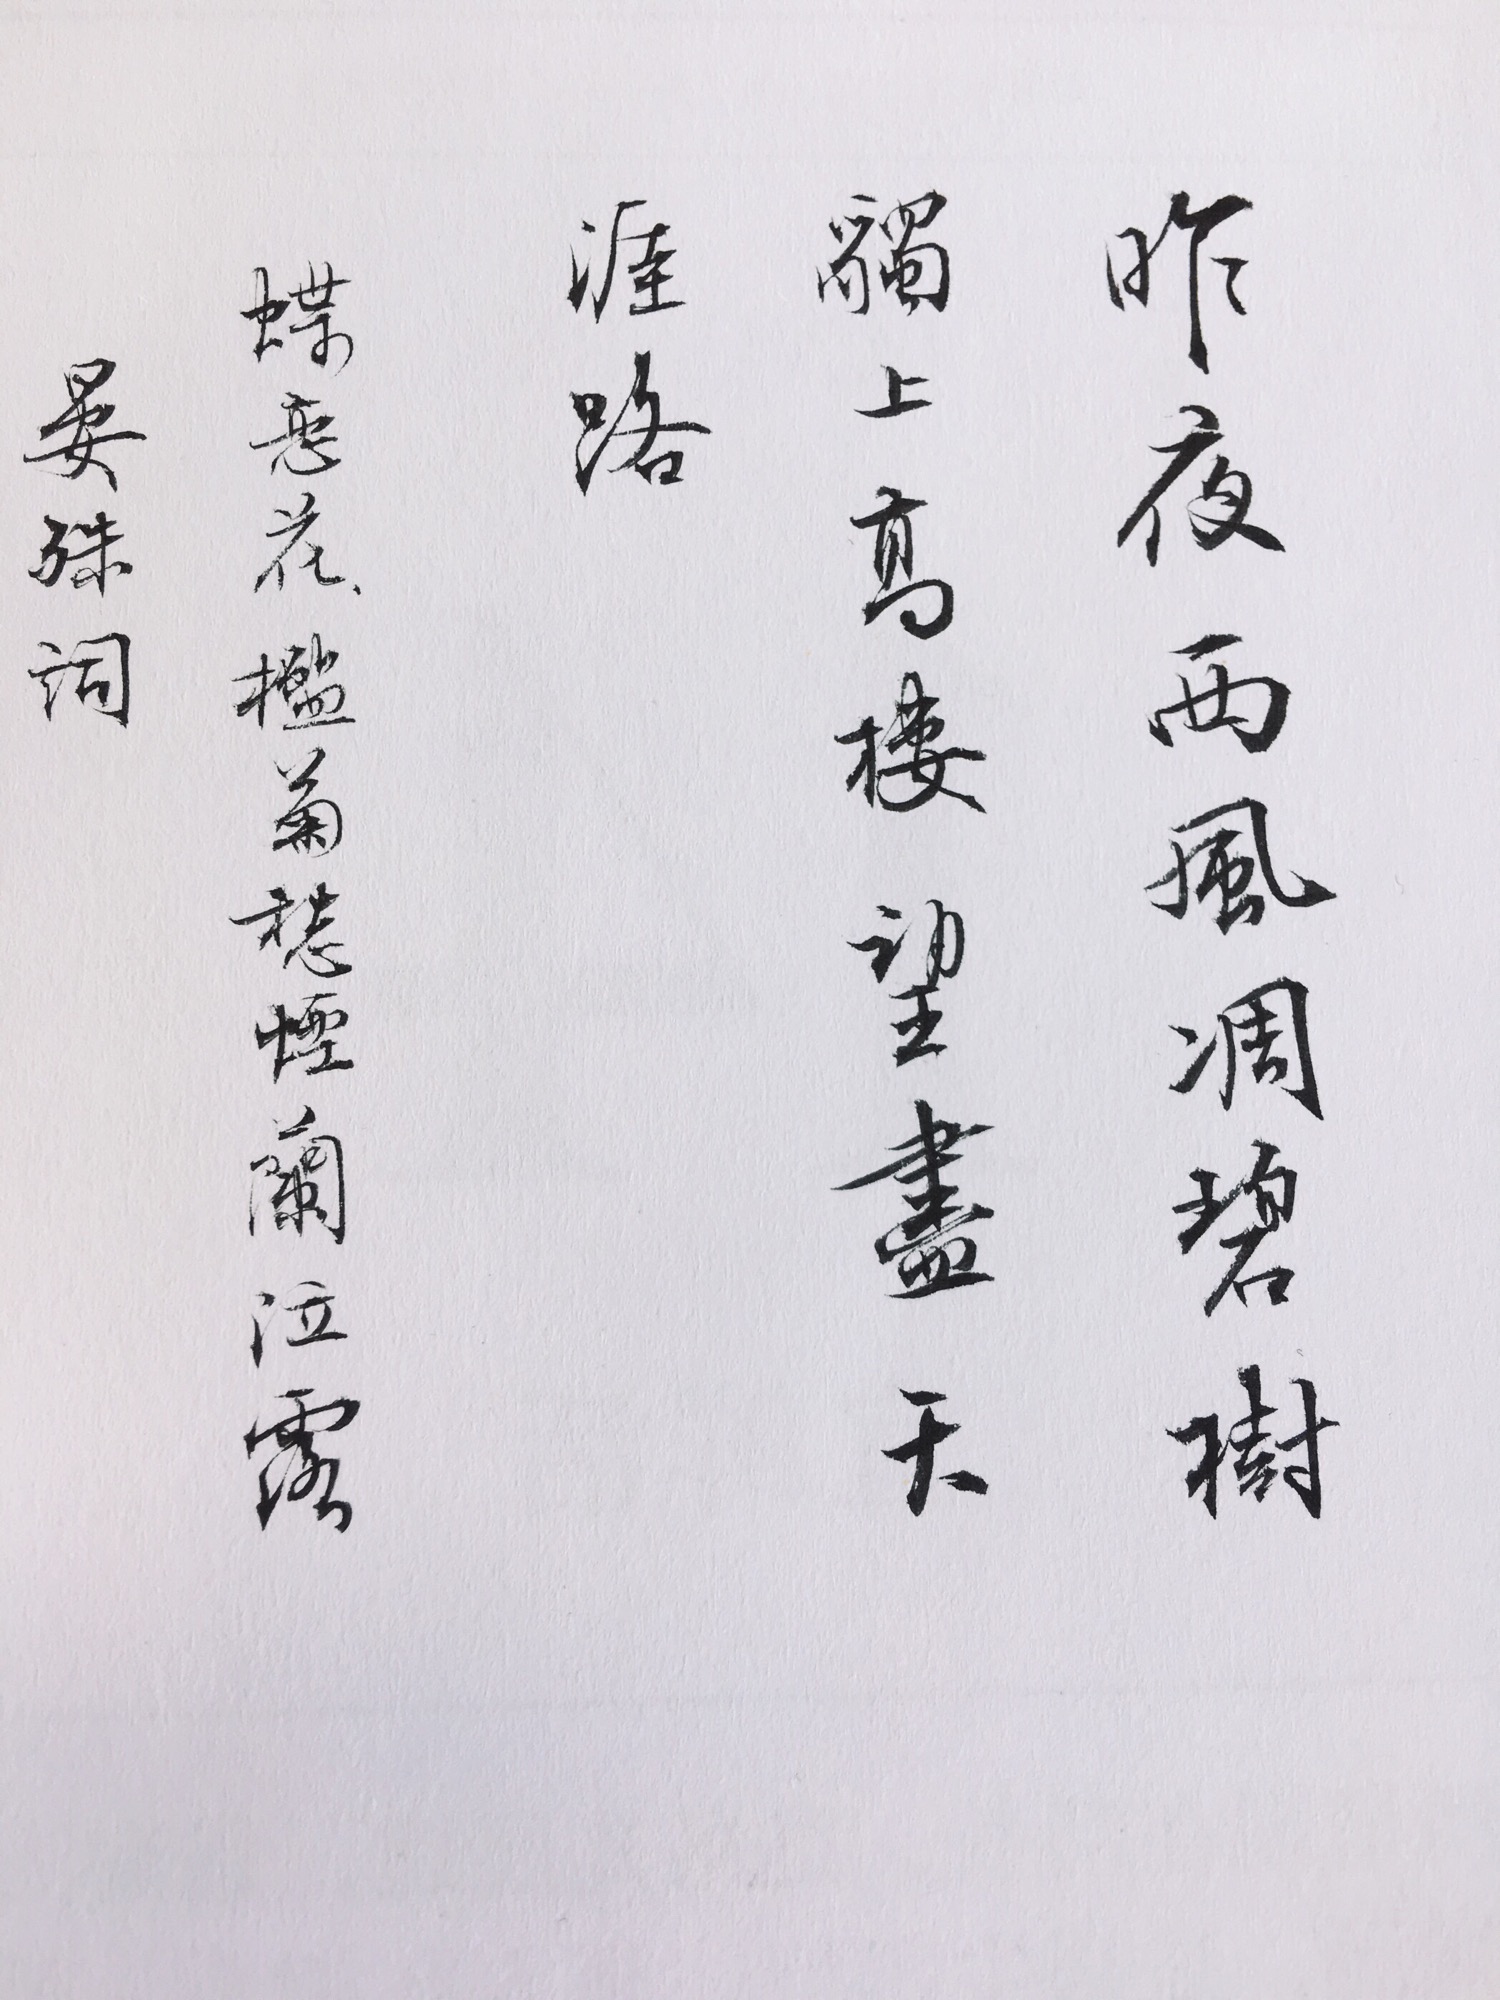 昨夜西風凋碧樹
獨上高樓望盡天
涯路
蝶恋花檻菊愁煙蘭泣露
晏殊詞